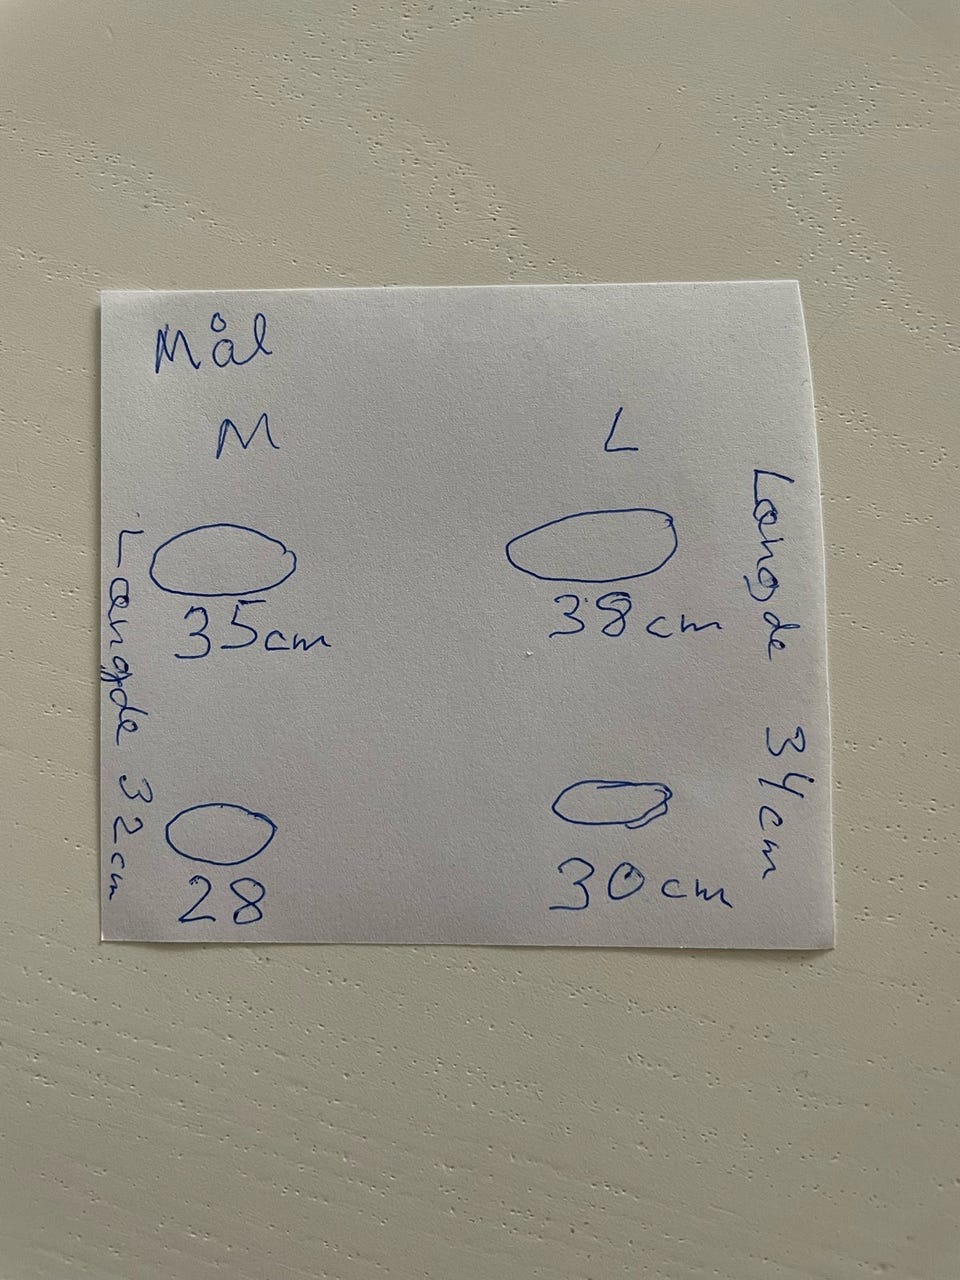 Mål
M
L
35cm
38cm
Længde 32cm
Længde 34cm
28
30cm